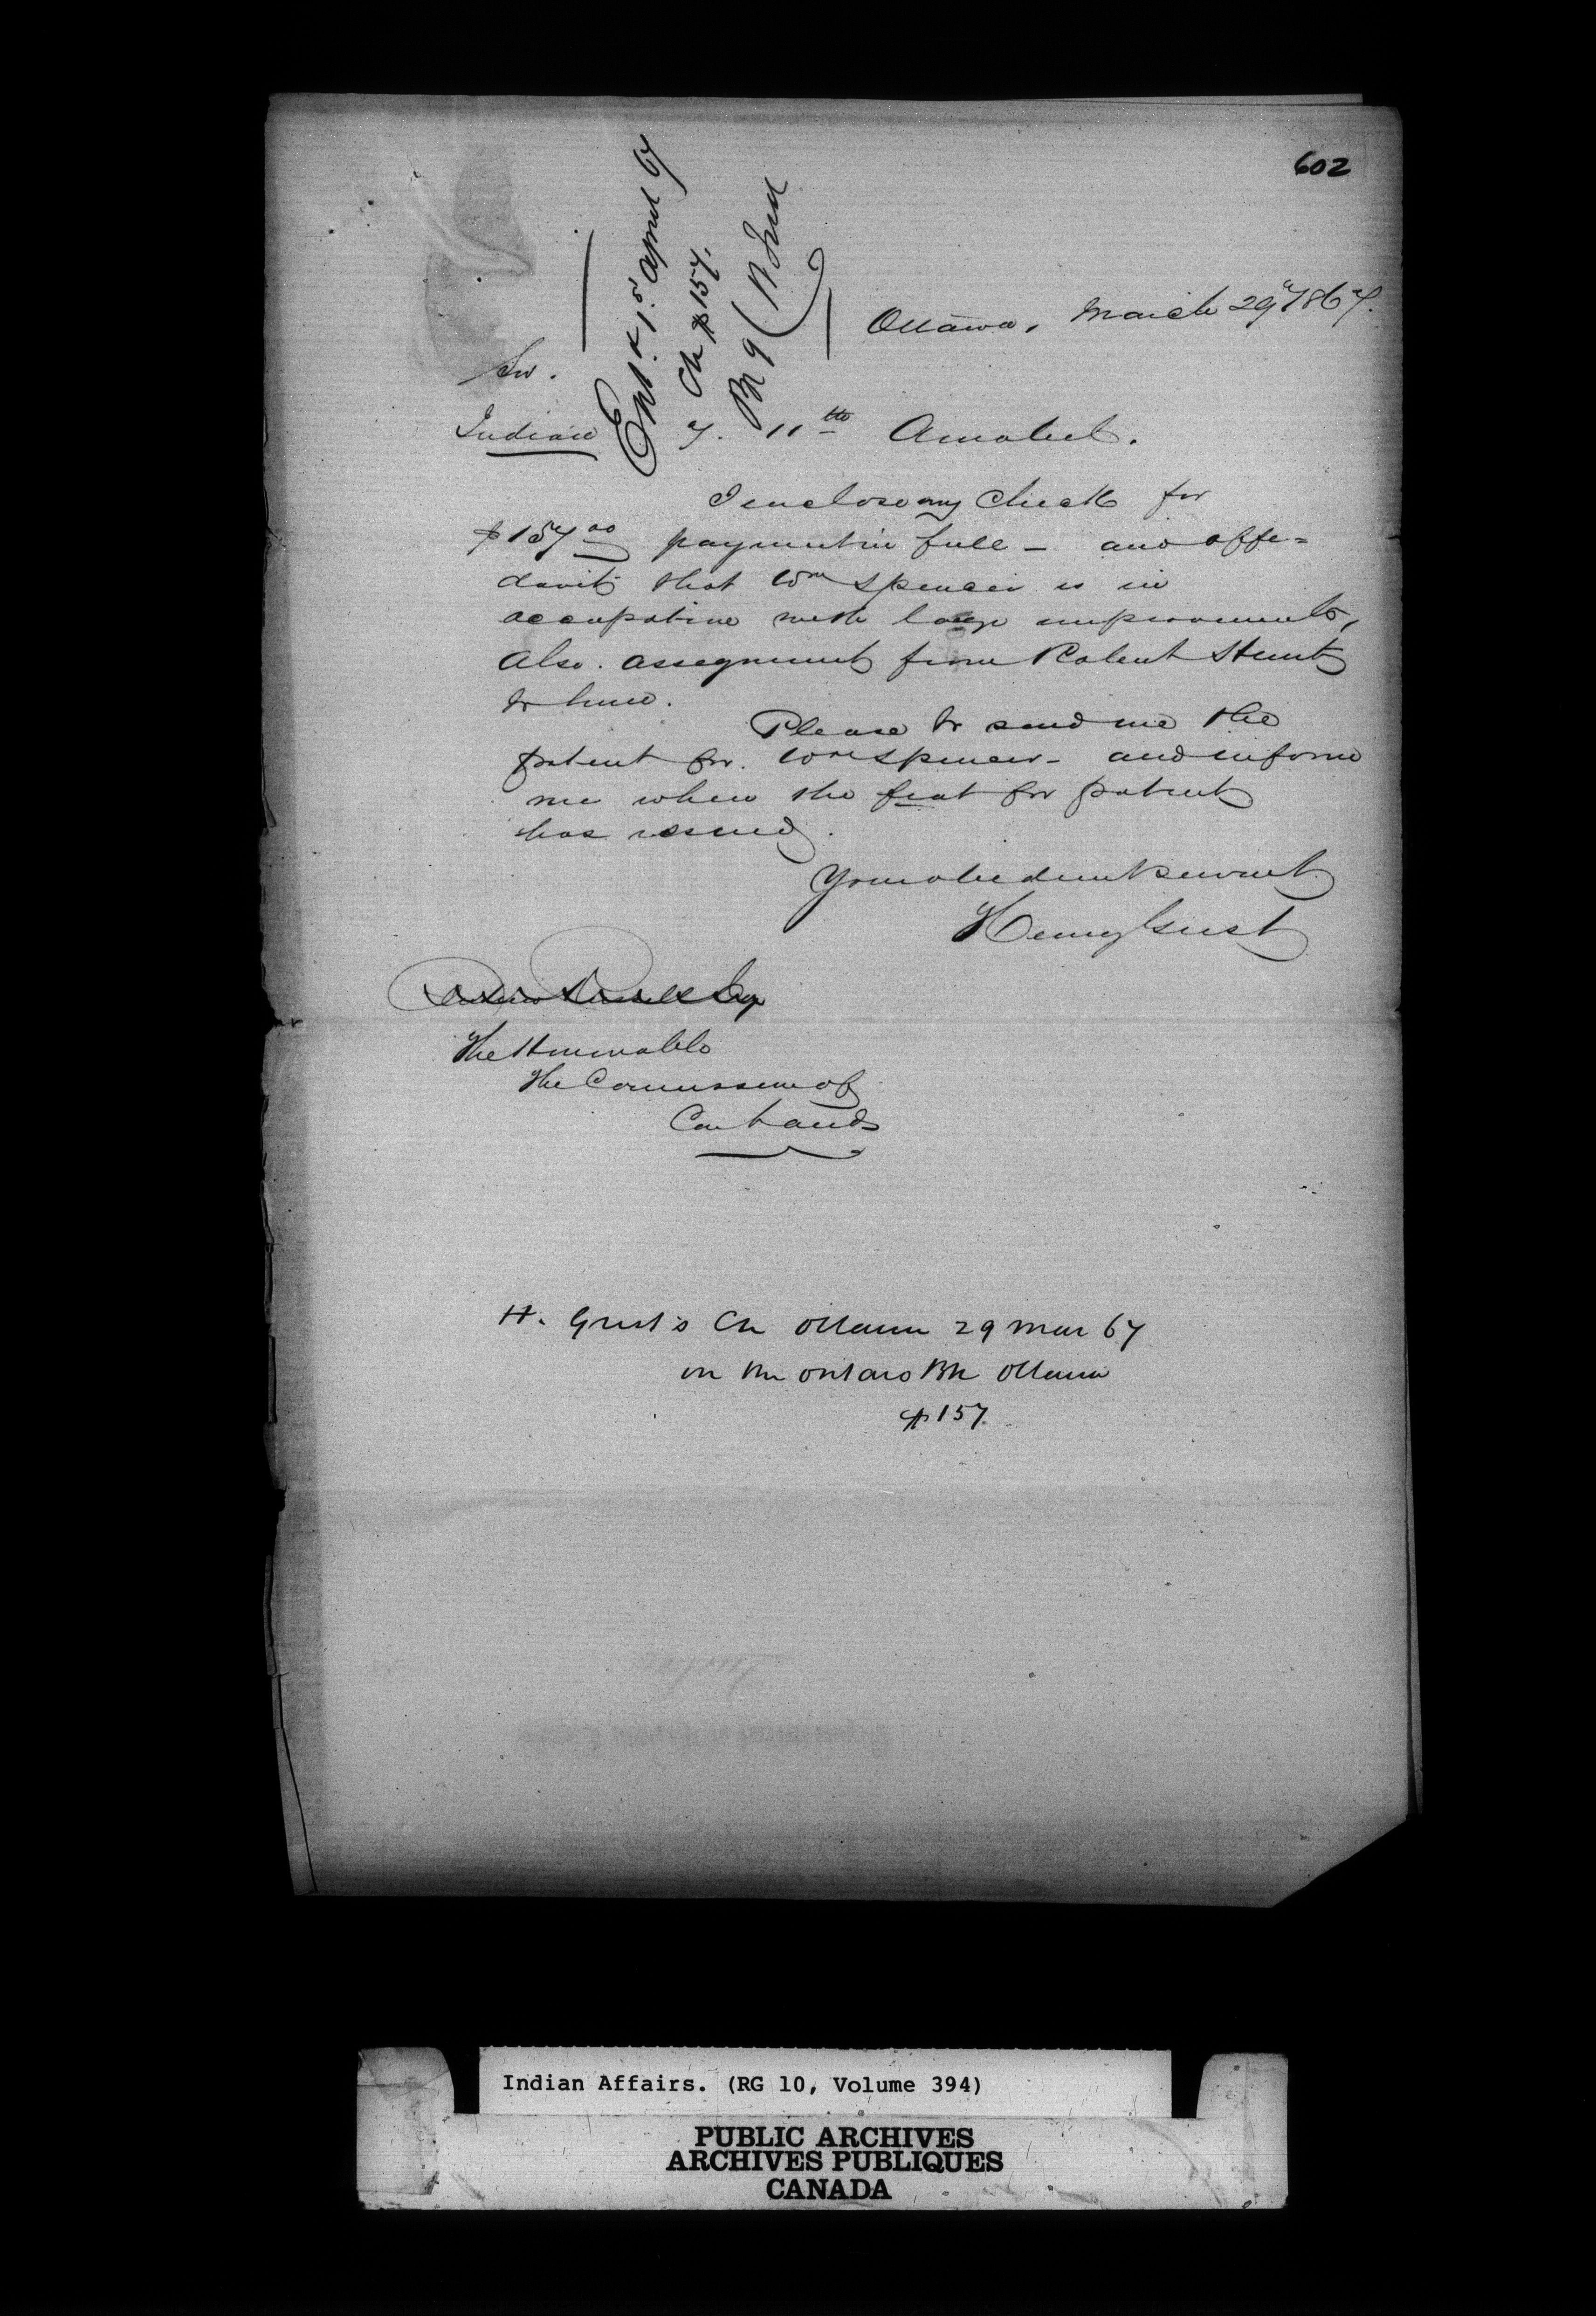 602
Ent.d 1st April 67
Ch $157.
Bk 9 (N Ind
Ottawa, March 29th 1867.
Sir.
Indian 7. 11th Amabel.
I enclose my Check for
$157 00 payment in full - and affi=
davit that Wm Spencer is in
occupation with large improvements,
Also. assignment from Robert Hunt
to him.
Please to send me the
patent for. Wm Spencer - and inform
me when the fiat for patent
has issued.
Your obedient servant
Henry Grist
Andrew Russell Esq
The Honorable
The Commissioner of
Crn Lands
H. Grist's Ch Ottawa 29 Mar 67
on the Ontario Bk Ottawa
$157.
Indian Affairs. (RG 10, Volume 394)
PUBLIC ARCHIVES
ARCHIVES PUBLIQUES
CANADA